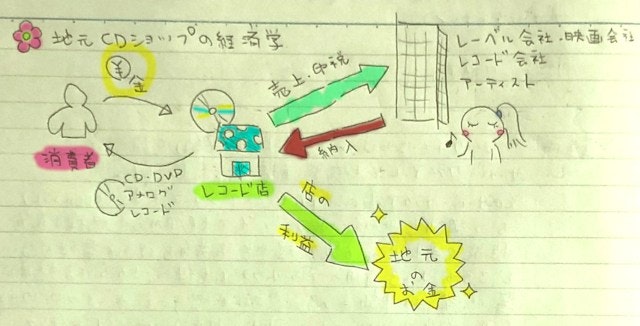 地元CDショップの経済学
¥
お金
消費者
CD・DVD
アナログ
レコード
レコード店
売上・印税
納入
レーベル会社・映画会社
レコード会社
アーティスト
店の
利益
地元
の
お金